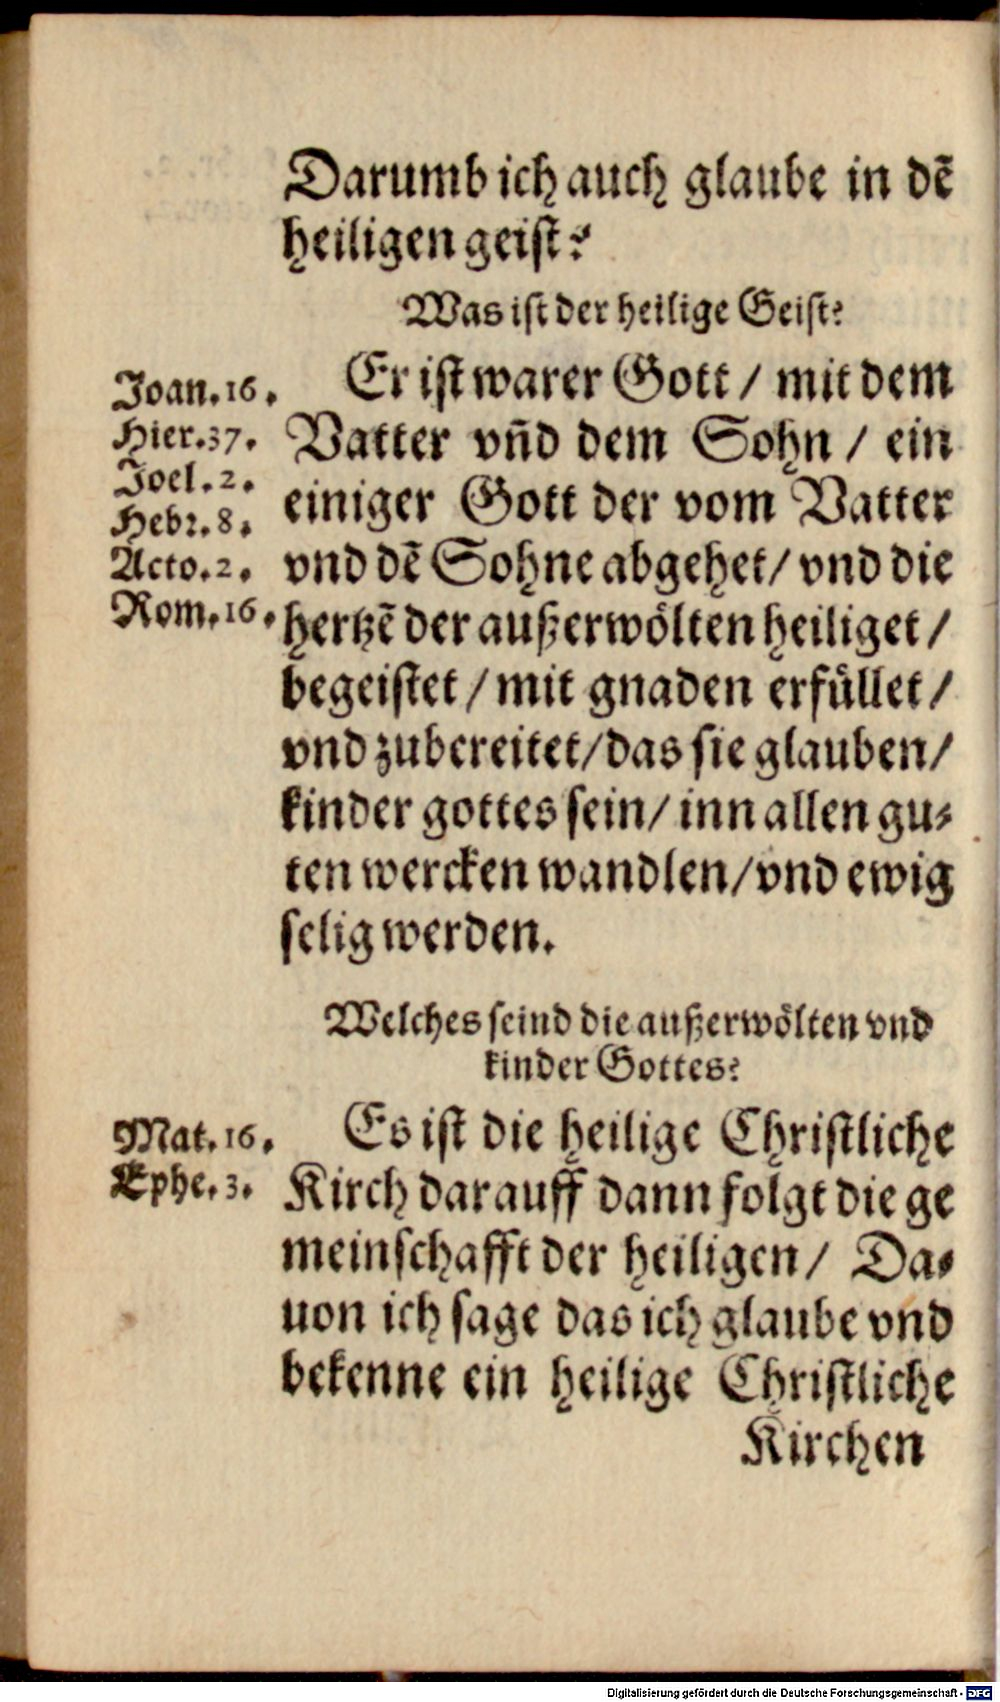 Darumb ich auch glaube in dẽ
heiligen geist?
Was ist der heilige Geist?
Er ist warer Gott / mit dem
Vatter vñd dem Sohn / ein
einiger Gott der vom Vatter
vnd dẽ Sohne abgehet/ vnd die
hertzẽ der außerwölten heiliget /
begeistet / mit gnaden erfüllet /
vnd zubereitet/das sie glauben/
kinder gottes sein/ inn allen gu-
ten wercken wandlen/vnd ewig
selig werden.
Joan. 16.
Hier. 37.
Joel. 2.
Hebr. 8.
Acto. 2.
Rom. 16.
Welches seind die außerwölten vnd
kinder Gottes?
Es ist die heilige Christliche
Kirch darauff dann folgt die ge
meinschafft der heiligen/ Da-
uon ich sage das ich glaube vnd
bekenne ein heilige Christliche
Kirchen
Mat. 16.
Ephe. 3.
Digitalisierung gefördert durch die Deutsche Forschungsgemeinschaft - DFG